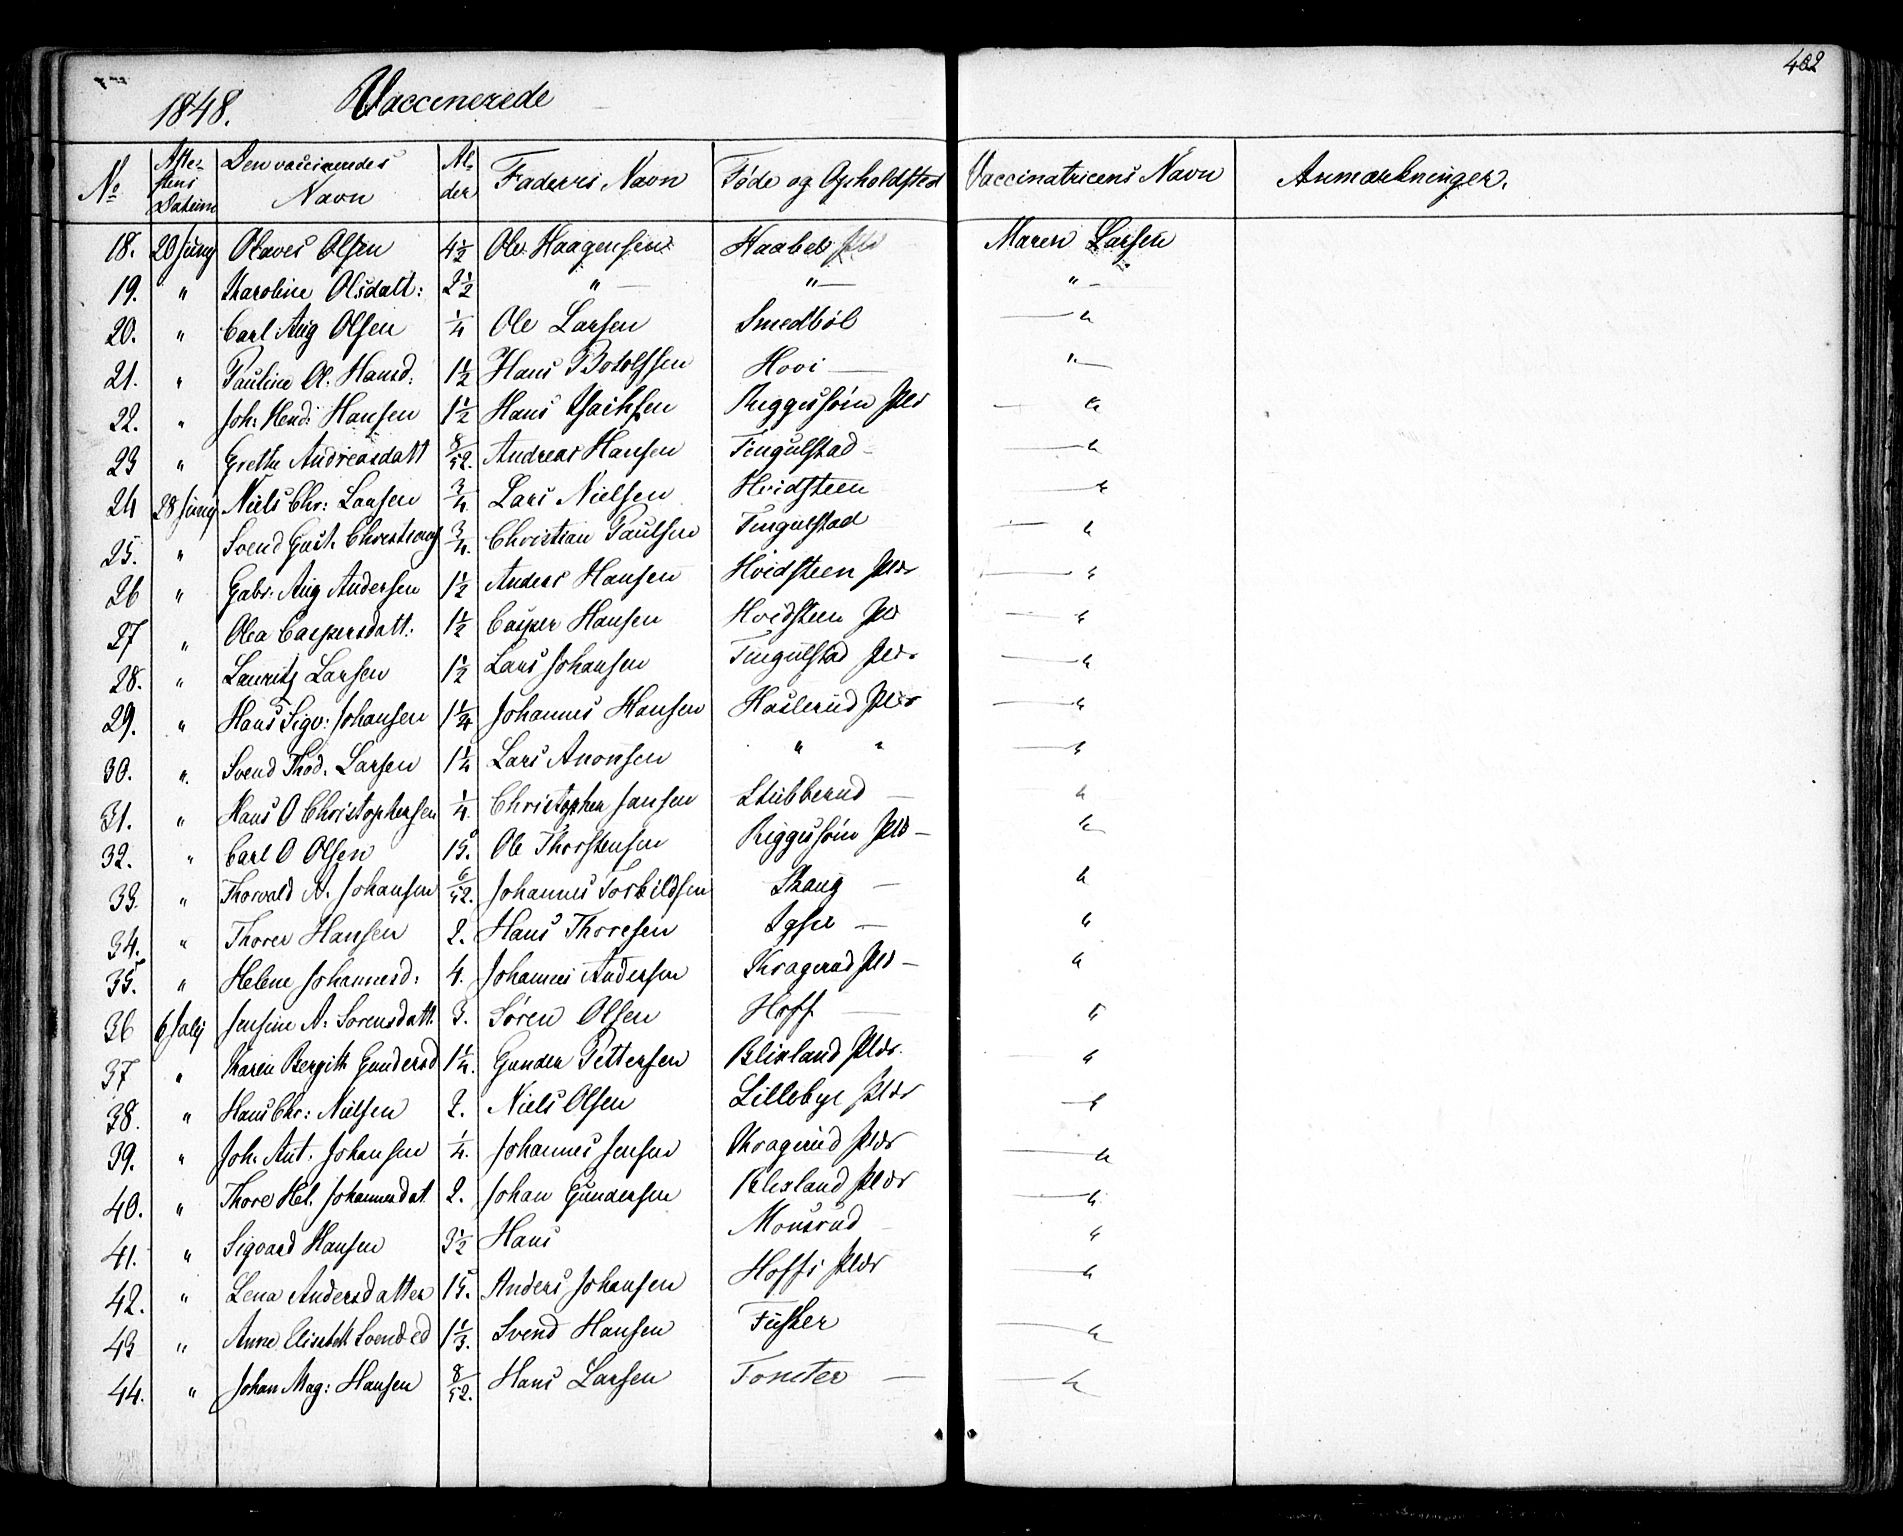 402
1848. Vaccinerede
No Atte-stens Datum Den vaccineredes Navn Al-der Faderens Navn Føde og Opholdsted Vaccinatricens Navn Anmærkninger.
18. 20 Juny Olaves Olsen 4 1/2 Ole Haagensen Haabel Maren Larsen
19. " Karoline Olsdatt: 2 1/2 " — " — " —
20. " Carl Aug Olsen 1/4 Ole Larsen Smedböl — "
21. " Pauline O. Hansd: 1 1/2 Hans Botolfsen Hovi — " —
22. " Joh: Hend: Hansen 1 1/2 Hans Isaksen Ruggesöin Pld — "
23 " Grethe Andreasdatt 8/52. Andreas Hansen Tingulstad — — "
24 28 Juny Niels Chr: Laasen 3/4 Lars Nielsen Hvidsteen — "
25. " Svend Gust. Christians 3/4. Christian Paulsen Tingulstad — "
26 " Gabr: Aug Andersen 1 1/2 Anders Hansen Hvidsteen Pldr — "
27 " Olea Caspersdatt: 1 1/2 Casper Hansen Hvidsteen Pld — "
28. " Lauritz Larsen 1 1/2 Lars Johansen Tingulstad Pldr — "
29. " Hans Sigv: Johansen 1 1/4 Johannes Hansen Haslerud Pldr — "
30. " Svend Thod. Larsen 1 1/4 Lars Anonsen " " — "
31. " Hans O Christophersen 1/4. Christopher Jansen Stubberud — "
32. " Carl O Olsen 15. Ole Thorstensen Riggesöin Pld — "
33. " Thorvald A. Johansen 6/52. Johannes Torkildsen Skaug — "
34. " Thorer Hansen 2. Hans Thoresen Igser — "
35. " Helene Johannesd: 4. Johannes Andersen Kragerud Pld — "
36 6 July Jensine A. Sorensdatt. 3. Søren Olsen Hoff — "
37 " Karen Bergith Gundersd 1 1/4. Gunder Pettersen Blixland Pldr. "
38. " Hans Chr: Nielsen 2. Niels Olsen Lillebye Pldr — "
39. " Joh. Ant. Johansen 1/4. Johannes Jensen Kragerud Pldr — "
40. " Thore Hel. Johannesdat 2. Johan Gundersen Blixland Pldr — "
41. " Sigvard Hansen 3 1/2 Hans Monsrud "
42. " Lena Andersdatter 15. Anders Johansen Hoffs Pldr — "
43 " Anne Elisabeth Svendsd 1 1/3. Svend Hansen Fusker — "
44. " Johan Mag: Hansen 8/52. Hans Larsen Tomter — — "